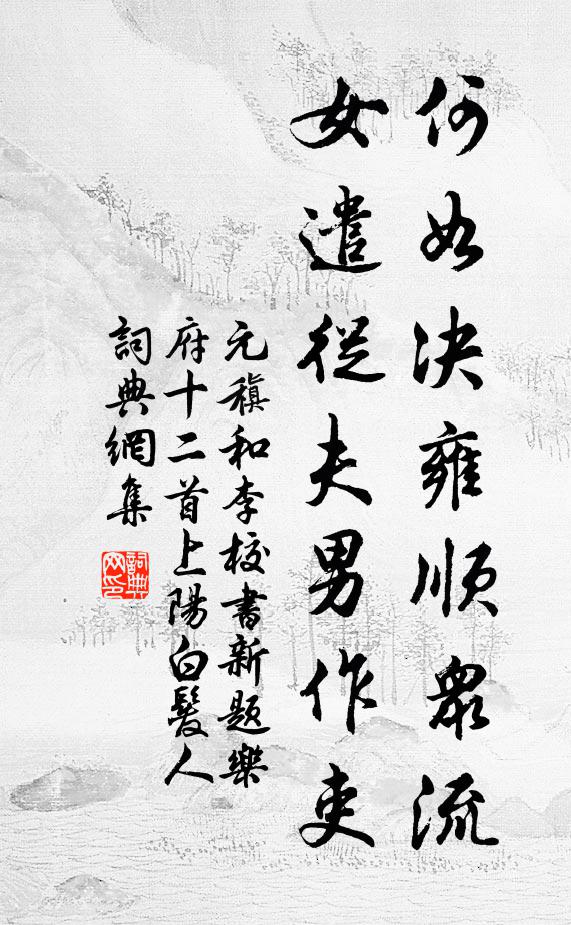 何如决雍順眾流
女遣從夫男作吏
元稹和李校書新題樂
府十二首上陽白髮人
詞典網集
詞典网印